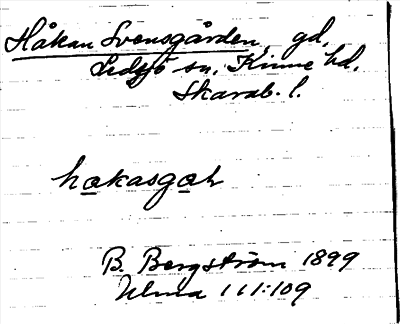 Håkan Svensgården, gd,
Ledsjö sn, Kinne hd.
Skarab. l.
håkasgah
B. Bergström 1899
Ulma 111:109